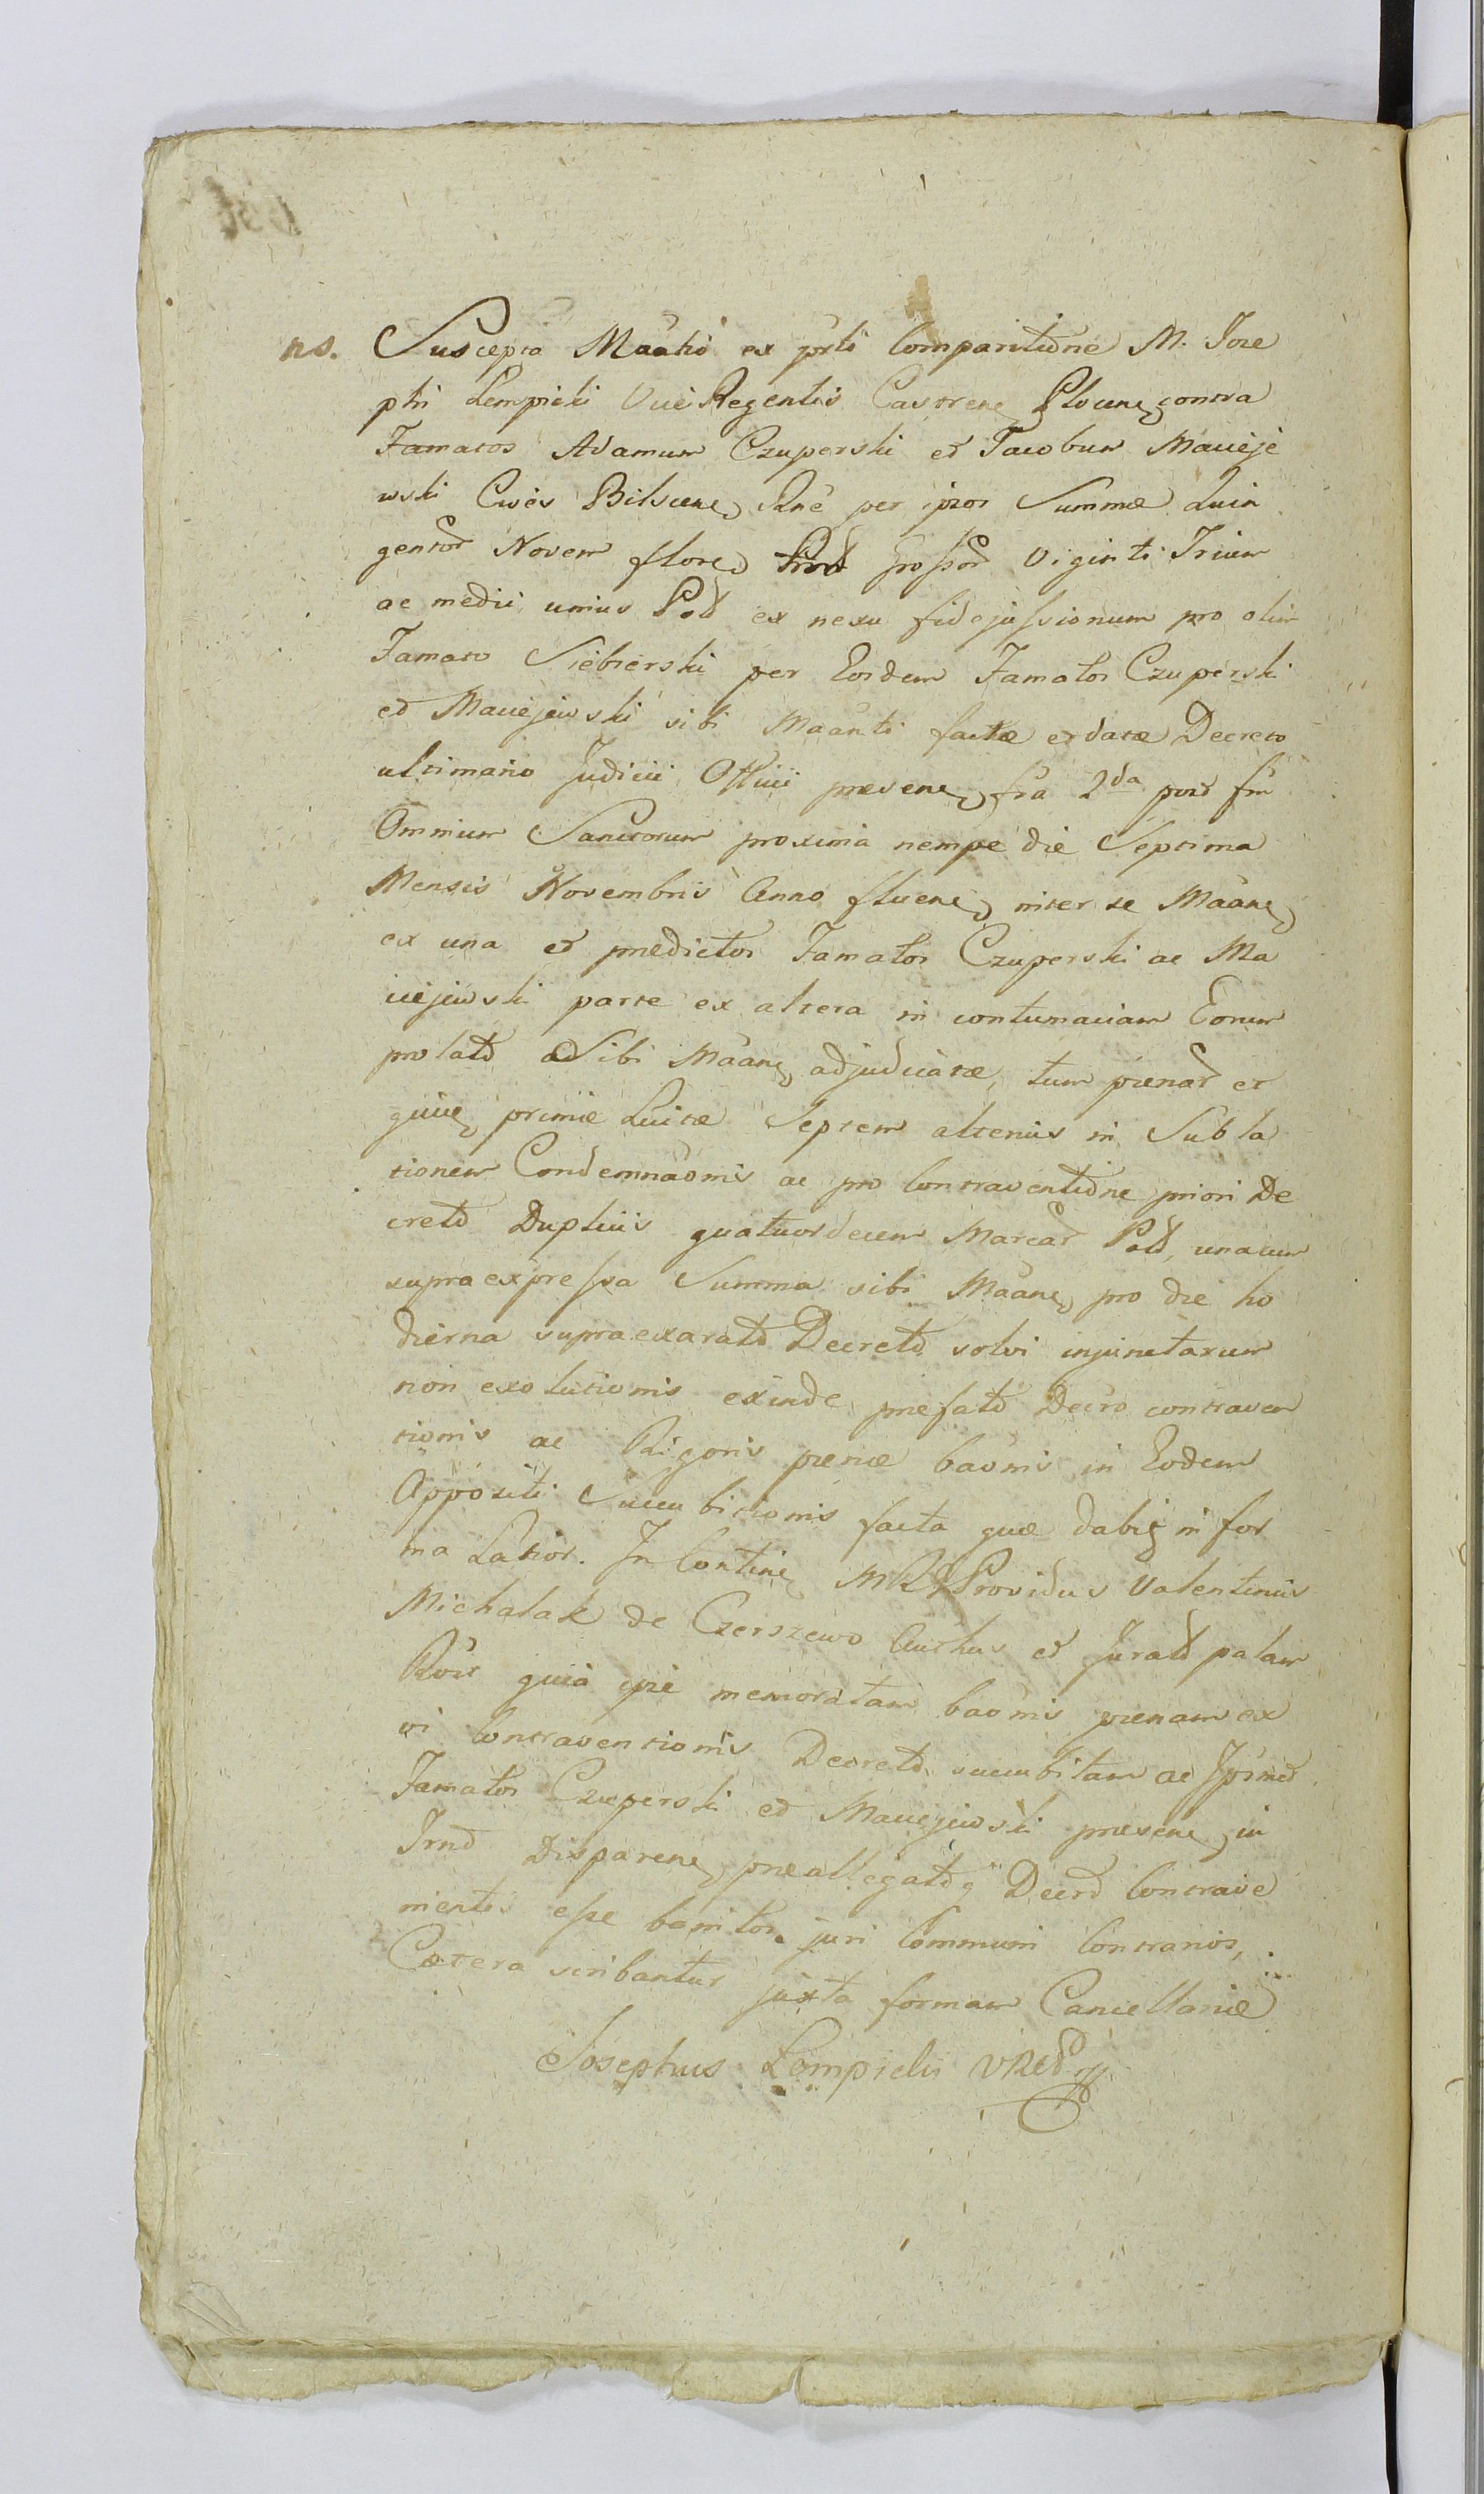 ns. Suscepta Maatio ex prti Comparitione M. Jose
phi Lempicki Vice Regentis Castren Plocen contra
Famatos Adamum Czuperski et Jacobum Macieje
wski Cives Bilscen, Rne per ipsos Summæ Quin
gentor Novem floren Grossor Viginti Trium
ac medii unius Pol ex nexu fidejussionum pro olim
Famato Siebierski per Eosdem Famatos Czuperski
et Maciejewski sibi Maanti factæ et datæ Decreto
ultimario Judicii Officii præsen, fra 2da post fm
Omnium Sanctorum proxima nempe die Septima
Mensis Novembris Anno fluen, inter se Maan,
ex una et prædictos Famatos Czuperski ac Ma
ciejewski parte ex altera in contumaciam Eorum
prolato adSibi Maan, adjudicatæ, tum pænar et
primæ Luitæ Septem alterius in Subla
tionem Condemnaonis ac pro Contraventione priori De
creto Dupliciis quatuordecem Marcar Pol, unacum
supraexpressa Summa sibi Maan, pro die ho
dierna supraexarato Decreto solvi injunctarum
non exolutionis exinde præfato Decro contraven
tionis ac Rigoris pænæ baonis in Eodem
Appositi Succubitionis facta quæ dabit in for
ma Latior. In Contine, Providus Valentinus
Michalak de Czerszewo Authus et Jurat palam
Rvit quia ipse memoratam baonis pænam ex
vi Contraventionis Decreto succubitam ac
Famatos Czuperski et Maciejewski præsen, in
Trno Disparen, præallegatoq Decro Contrave
nientes esse banitos juri Communi Contrarios,
Cætera scribantur juxta formam Cancellariæ
Josephus Lempicki VRCP